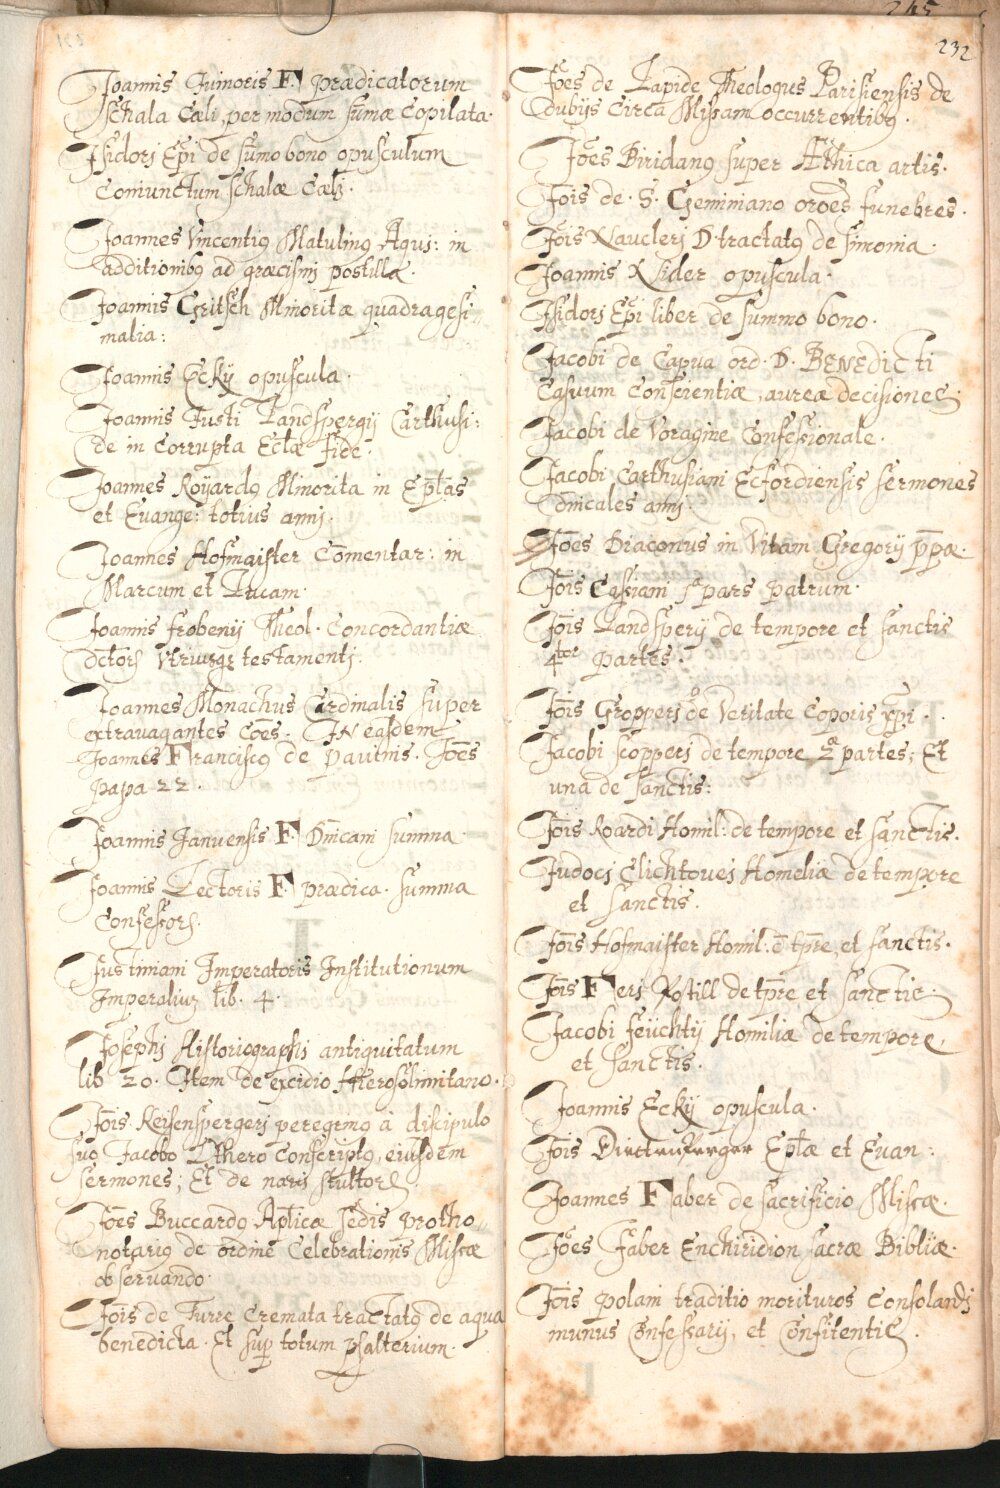 245
232
Joannis Junioris F. Prædicatorum
Schala Cæli, per modum sum̄æ Copilata.
Isidorj Ep̄i de sum̄o bono opusculum
Coniunctum schalæ Cæli.
Joannes Vincentiꝰ Matulinꝰ Aqus: in
additionibꝰ ad græcismj postilla.
Joannis Gritsch Minoritæ quadragesi
malia:
Joannis Eckij opuscula.
Joannis Justi Landspergij Carthusi:
de in Corrupta Eclæ fide.
Joannes Royardꝰ Minorita in Ep̄las
et Euange: totius annj.
Joannes Hofmaister Com̄entar: in
Marcum et Lucam.
Joannis frobenij Theol. Concordantiæ
Vtriusqꝫ testamentj.
Joannes Monachus Cardinalis super
extravagantes Cōes. IN easdem
Joannes Franciscꝰ de pauinis. Joēs
Papa 22.
Joannis Januensis F. Dn̄icani summa.
Joannis Lectoris F. prædica. summa
Confessorꝫ.
Justiniani Imperatoris Institutionum
Imperaliuꝫ lib. 4.
Josephj Historiographi antiquitatum
lib 20. Item de excidio Hierosolimitano.
Jōis Keisenspergerj peregrino à discipulo
suo Jacobo Othero Conscriptꝰ, eiusdem
sermones; Et de navi stultorꝫ.
Joēs Buccardꝰ Ap̄licæ sedis protho
notariꝰ de ordine Celebrationis Missæ
obseruando.
Jōis de Turre Cremata tractatꝰ de aqua
benedicta. Et sup totum psalterium.
Joēs de Lapide Theologus Parisiensis de
dubijs Circa Missam occurrentibꝰ.
Joēs Biridanꝰ super Æthica artis.
Jōis de. S. Geminiano orōes funebres.
Jōis Nauclerj D tractatꝰ de simonia.
Joannis Nider opuscula.
Isidorj Ep̄i liber de summo bono.
Jacobi de Capua ord. D. BENEDICTI
Casuum Conscientiæ, aureæ decisiones.
Jacobi de Voragine Confessionale.
Jacobi Carthusiani Ecfordiensis sermones
dn̄icales annj.
Joēs Diaconus in Vitam Gregorij p̄pæ.
Jōis Cassiani pars patrum.
Jōis Landsperij de tempore et sanctis
4tor partes.
Jōis Gropperj de Veritate Coporis xp̄i.
Jacobi scopperj de tempore 2a partes; Et
una de sanctis:
Jōis Roardi Homil: de tempore et sanctis.
Judocj Clichtouej Homeliæ de tempore
et sanctis.
Jōis Hofmaister Homil: d̄ tp̄re, et sanctis.
Jōis Feri Postill de tp̄re et sanctis.
Jacobi feüchtij Homiliæ de tempore,
et sanctis.
Joannis Eckij opuscula.
Jōis Dietenberger Ep̄læ et Euan:
Joannes Faber de sacrificio Missæ.
Joēs Faber Enchiridion sacræ Bibliæ.
Jōis polani traditio morituros Consolandj
munus Confessarij, et Confitentis.